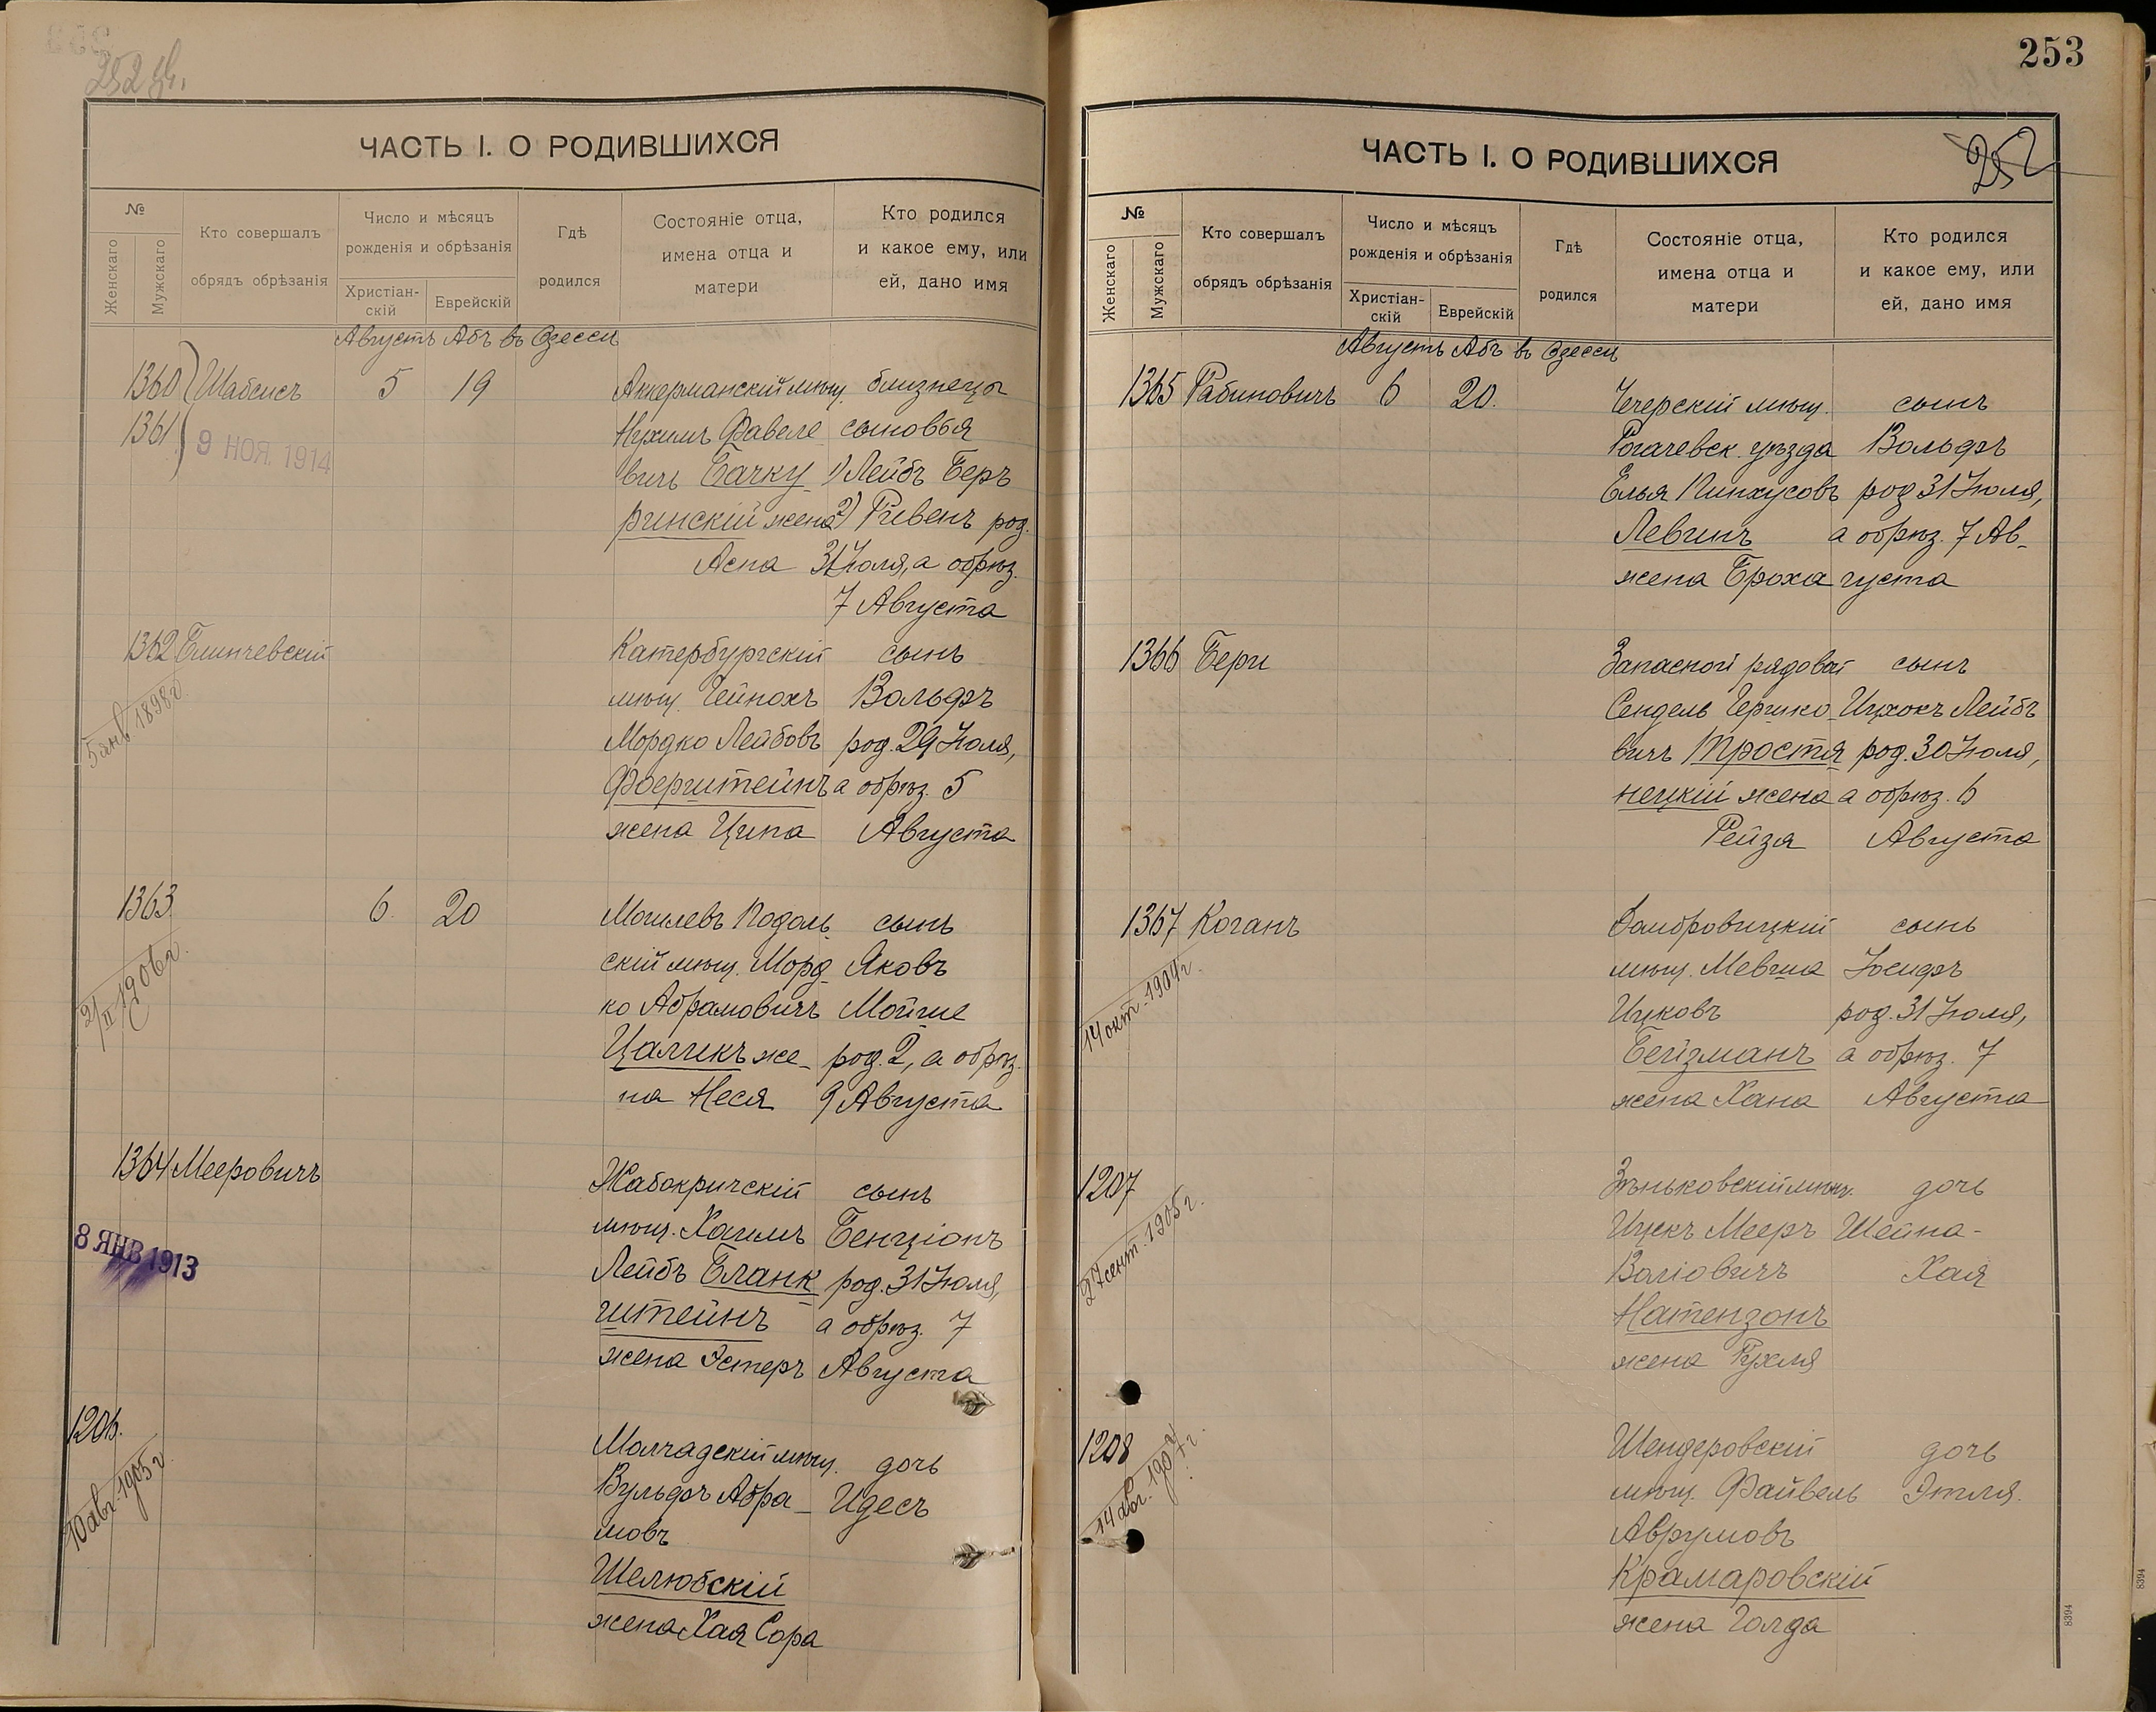 252 об.
ЧАСТЬ I. О РОДИВШИХСЯ
№
Женскаго
Мужскаго
Кто совершалъ
обрядъ обрѣзанія
Число и мѣсяцъ
рожденія и обрѣзанія
Христіан-
скій
Еврейскій
Гдѣ
родился
Состояніе отца,
имена отца и
матери
Кто родился
и какое ему, или
ей, дано имя
Августъ Абъ въ Одессѣ
1360 Шабсисъ 5 19 Аккерманскій мѣщ. близнецы
1361 Нухимъ Фавеле сыновья
9 НОЯ. 1914
вичъ Бачку 1) Лейбъ Беръ
ринскій жена 2) Рувенъ род.
Аспа 31 Іюля, а обрѣз.
7 Августа
1362 Катербургскій сынъ
5 янв 1898 г.
мѣщ. Гейнохъ Вольфъ
Мордко Лейбовъ род. 29 Іюля,
Фоерштейнъ а обрѣз. 5
жена Ципа Августа
1363 6. 20 Могилевъ Подоль
сынъ
скій мѣщ. Морд Яковъ
2/II 1906 г.
ко Абрамовичъ Мойше
Цаликъ же- род. 2, а обрѣз.
на Неся 9 Августа
1364 Мееровичъ Жабокричскій сынъ
8 ЯНВ 1913
мѣщ. Хаимъ Бенціонъ
Лейбъ Бланк род. 31 Іюля,
штейнъ а обрѣз. 7
жена Эстеръ Августа
1206. Молчадскій мѣщ. дочь
10 авг. 1905 г.
Вульфъ Абра- Идесъ
мовъ
Шелюбскій
жена Хая Сора
253
252
ЧАСТЬ I. О РОДИВШИХСЯ
№
Женскаго
Мужскаго
Кто совершалъ
обрядъ обрѣзанія
Число и мѣсяцъ
рожденія и обрѣзанія
Христіан-
скій
Еврейскій
Гдѣ
родился
Состояніе отца,
имена отца и
матери
Кто родился
и какое ему, или
ей, дано имя
Августъ Абъ въ Одессѣ
1365 Рабиновичъ 6 20. Чечерскій мѣщ. сынъ
Рогачевск. уѣзда Вольфъ
Елья Пинхусовъ род 31 Іюля,
Левинъ а обрѣз. 7 Ав-
жена Броха густа
1366 Бери Запасной рядовой сынъ
Сендель Гершко Ицхокъ Лейбъ
вичъ Тростя род. 30 Іюля,
нецкій жена а обрѣз. 6
Рейза Августа
1367 Коганъ Домбровицкій сынъ
мѣщ. Мевша Іосифъ
14 окт. 1904 г.
Ицковъ род. 31 Іюля,
Бейзманъ а обрѣз. 7
жена Хана Августа
1207 Зѣньковскій мѣщ. дочь
27 сент. 1905 г.
Ицкъ Мееръ Шейна-
Воліовичъ Хая
Натензонъ
жена Рухля
1208 Шендеровскій дочь
14 авг. 1907 г.
мѣщ. Файвель Этля.
Аврумовъ
Крамаровскій
жена Голда
8394
8394